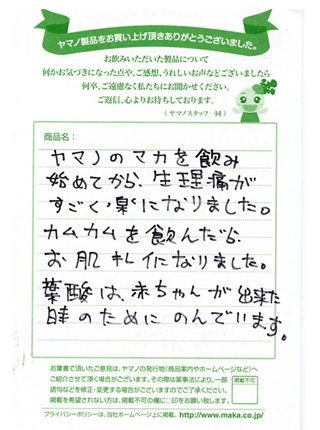 ヤマノ製品をお買い上げ頂きありがとうございました。
お飲みいただいた製品について
何かお気づきになった点や、ご感想、うれしいお声などございましたら
何卒、ご遠慮なく私たちにお聞かせください。
ご返信、心よりお待ちしております。
（ヤマノスタッフ一同）
商品名：
ヤマノのマカを飲み
始めてから、生理痛が
すごく楽になりました。
カムカムを飲んだら、
お肌キレイになりました。
葉酸は、赤ちゃんが出来た
時のためにのんでいます。
お葉書で頂いたご意見は、ヤマノの発行物（商品案内やホームページなど）へ
ご紹介させて頂く場合がございます。その際は薬事法により、一部
語句などを修正・変更する場合がございますのでご了承ください。
掲載を希望されない方は、掲載不可の欄に○印をお願い致します。
掲載不可
プライバシーポリシーは、当社ホームページ上に掲載。http://www.maka.co.jp/